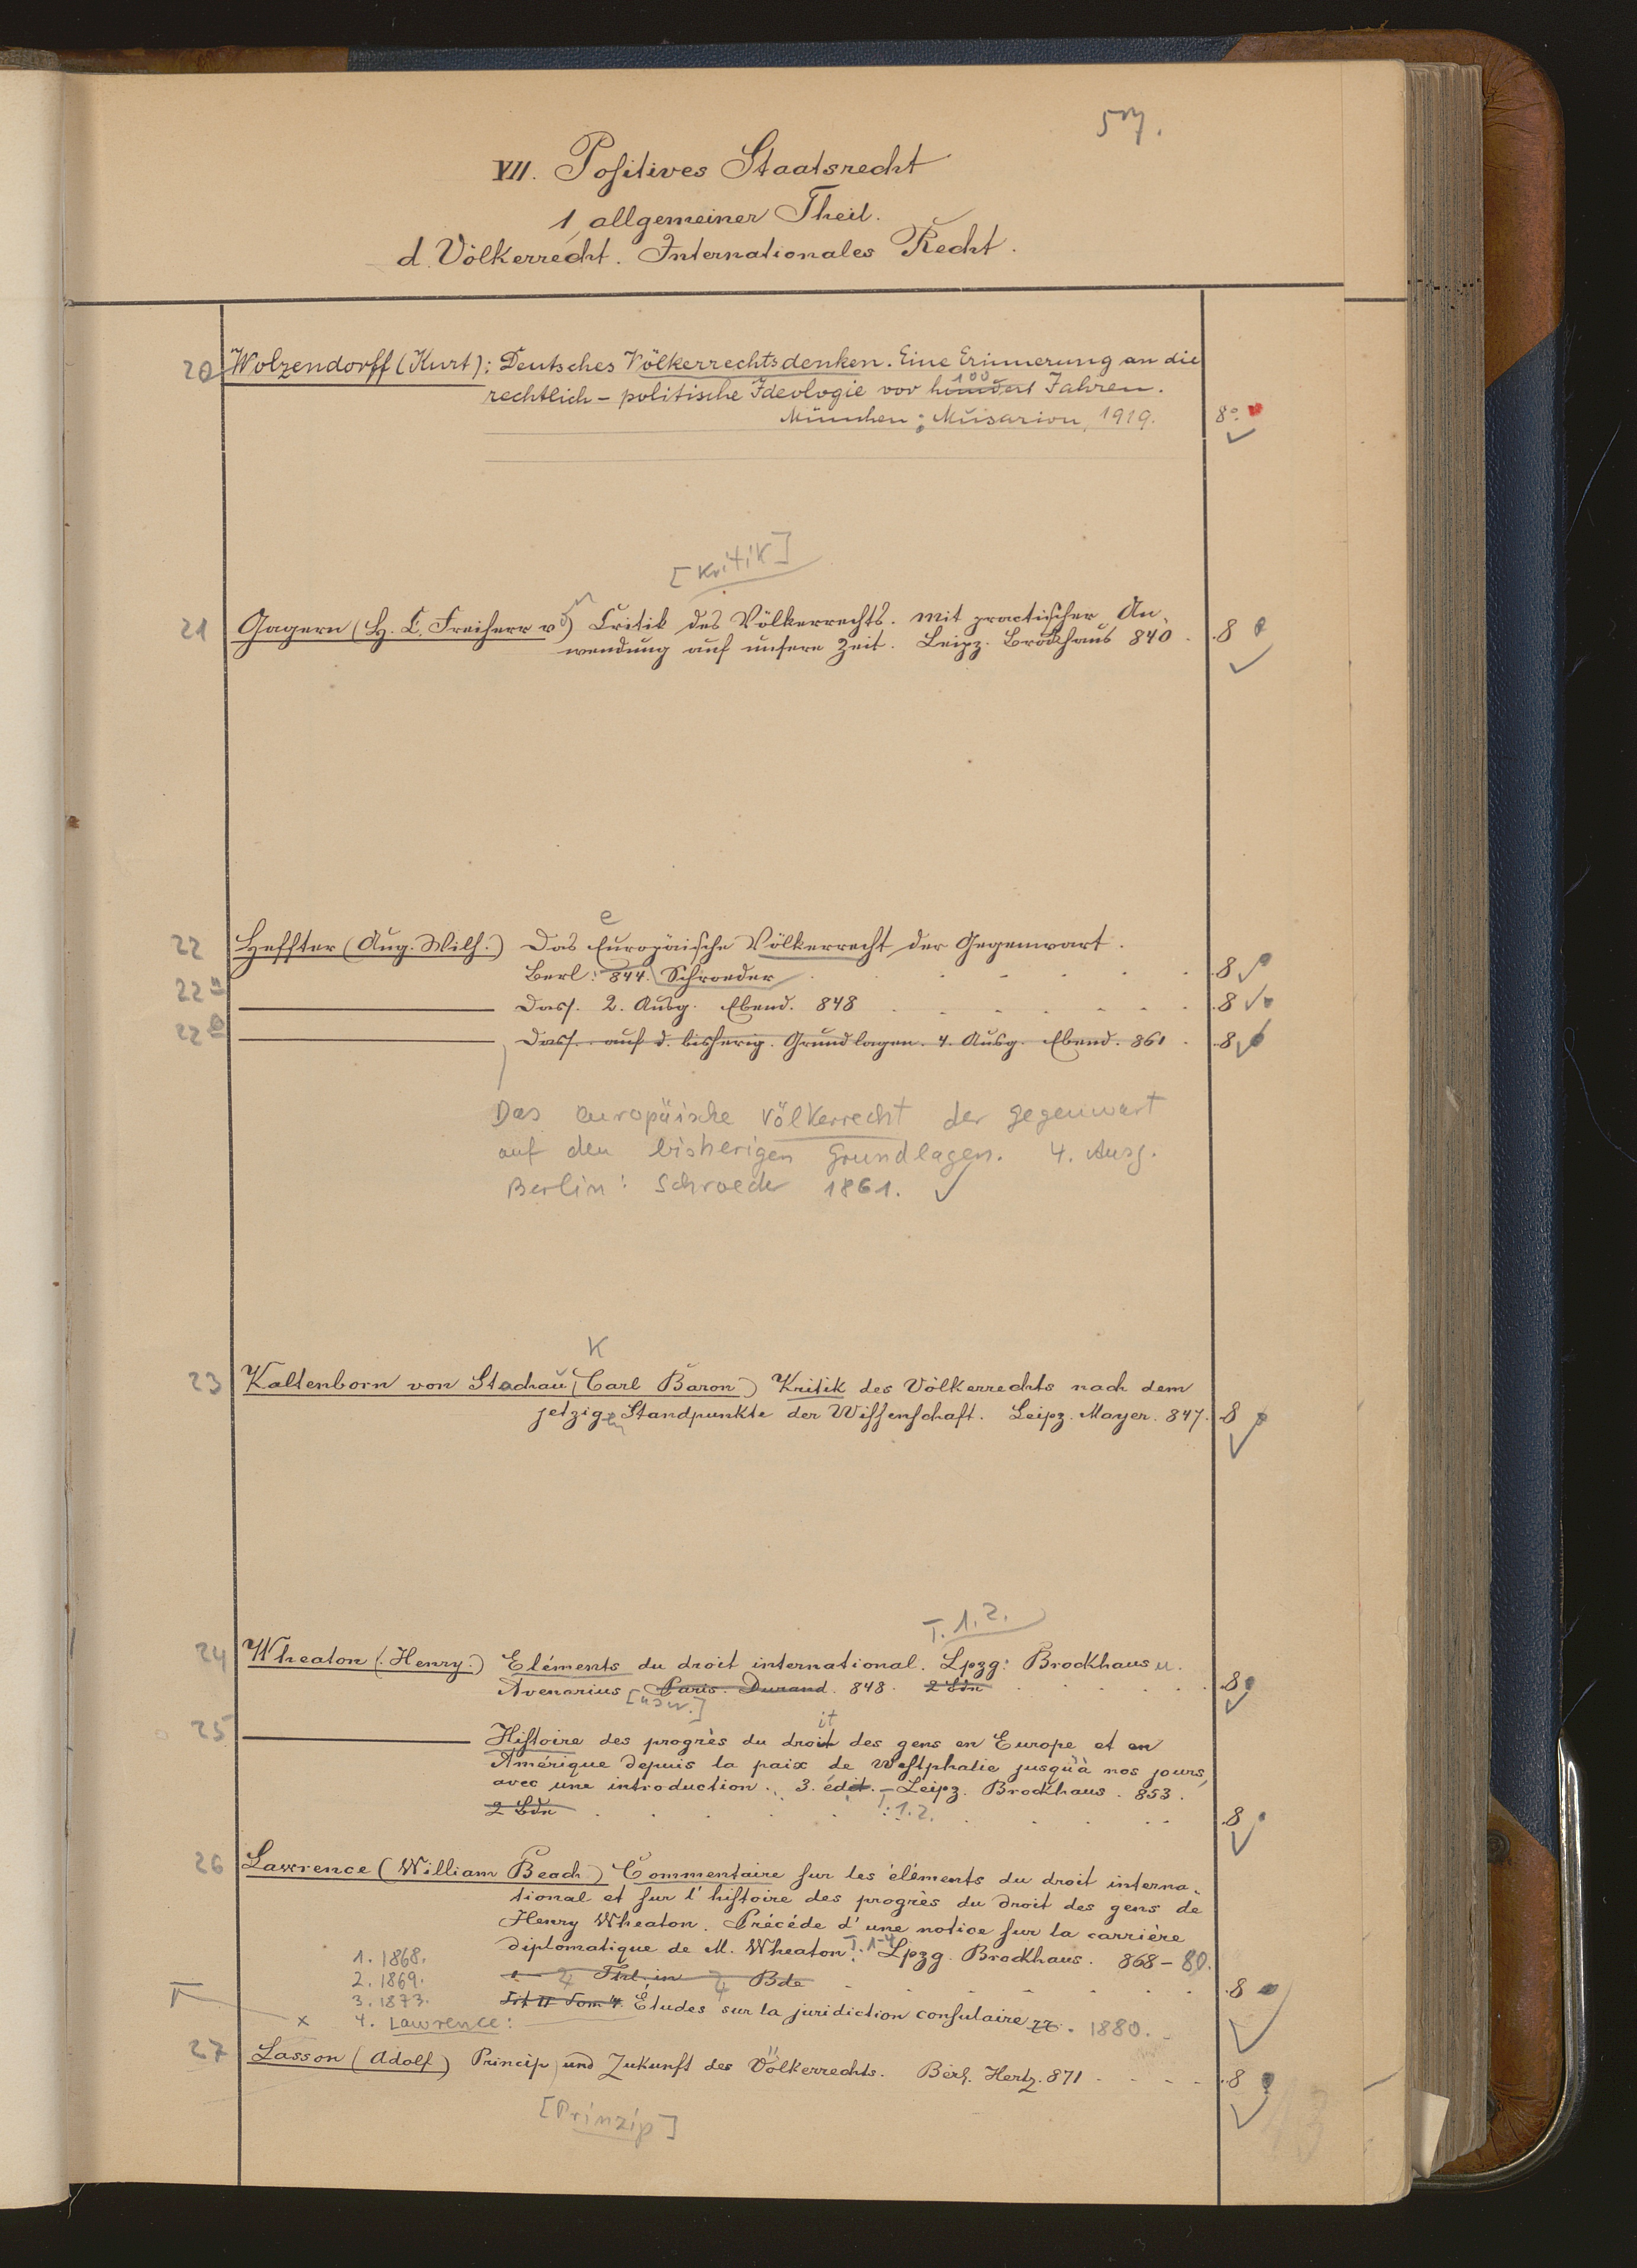 57.
VII. Positives Staatsrecht
1, allgemeiner Theil.
d. Völkerrecht. Internationales Recht.
20 Wolzendorff (Kurt): Deutsches Völkerrechtsdenken. Eine Erinnerung an die
100
rechtlich-politische Ideologie vor hundert Jahren.
München: Musarion, 1919. 8°.
[Kritik]
21 Gagern (H. C. Freiherr v.) Critik des Völkerrechts. Mit practischer An-
wendung auf unsere Zeit. Leipz. Brockhaus 840. 8
e
22 Heffter (Aug. Wilh.) Das Europäische Völkerrecht der Gegenwart.
Berl: 844. Schroeder 8
22a Dass. 2. Ausg. Ebend. 848 8
22b Dass. auf d. bisherig. Grundlagen. 4. Ausg. Ebend. 861. 8
Das europäische Völkerrecht der Gegenwart
auf den bisherigen Grundlagen. 4. Ausg.
Berlin: Schroeder 1861.
K
23 Kaltenborn von Stachau (Carl Baron) Kritik des Völkerrechts nach dem
jetzigen Standpunkte der Wissenschaft. Leipz. Mayer. 847. 8
T. 1.2.
24 Wheaton (Henry) Eléments du droit international. Lpzg: Brockhaus u.
Avenarius Paris. Durand. 848. 2 Bdn 8
[usw.]
it
25 Histoire des progrès du droit des gens en Europe et en
Amérique depuis la paix de Westphalie jusqu'à nos jours,
avec une introduction. 3. édit. Leipz. Brockhaus. 853.
2 Bdn T: 1.2. 8
26 Lawrence (William Beach) Commentaire sur les éléments du droit interna-
tional et sur l'histoire des progrès du droit des gens de
Henry Wheaton. Précéde d'une notice sur la carrière
diplomatique de M. Wheaton. T. 1-4 Lpzg. Brockhaus. 868-80.
1. 1868.
4 Thl. in 4 Bde 8
2. 1869.
3. 1873.
Tit II Tom 4. Études sur la juridiction consulaire 1880.
x 4. Lawrence:
27 Lasson (Adolf) Princip und Zukunft des Völkerrechts. Berl. Hertz. 871 8
[Prinzip]